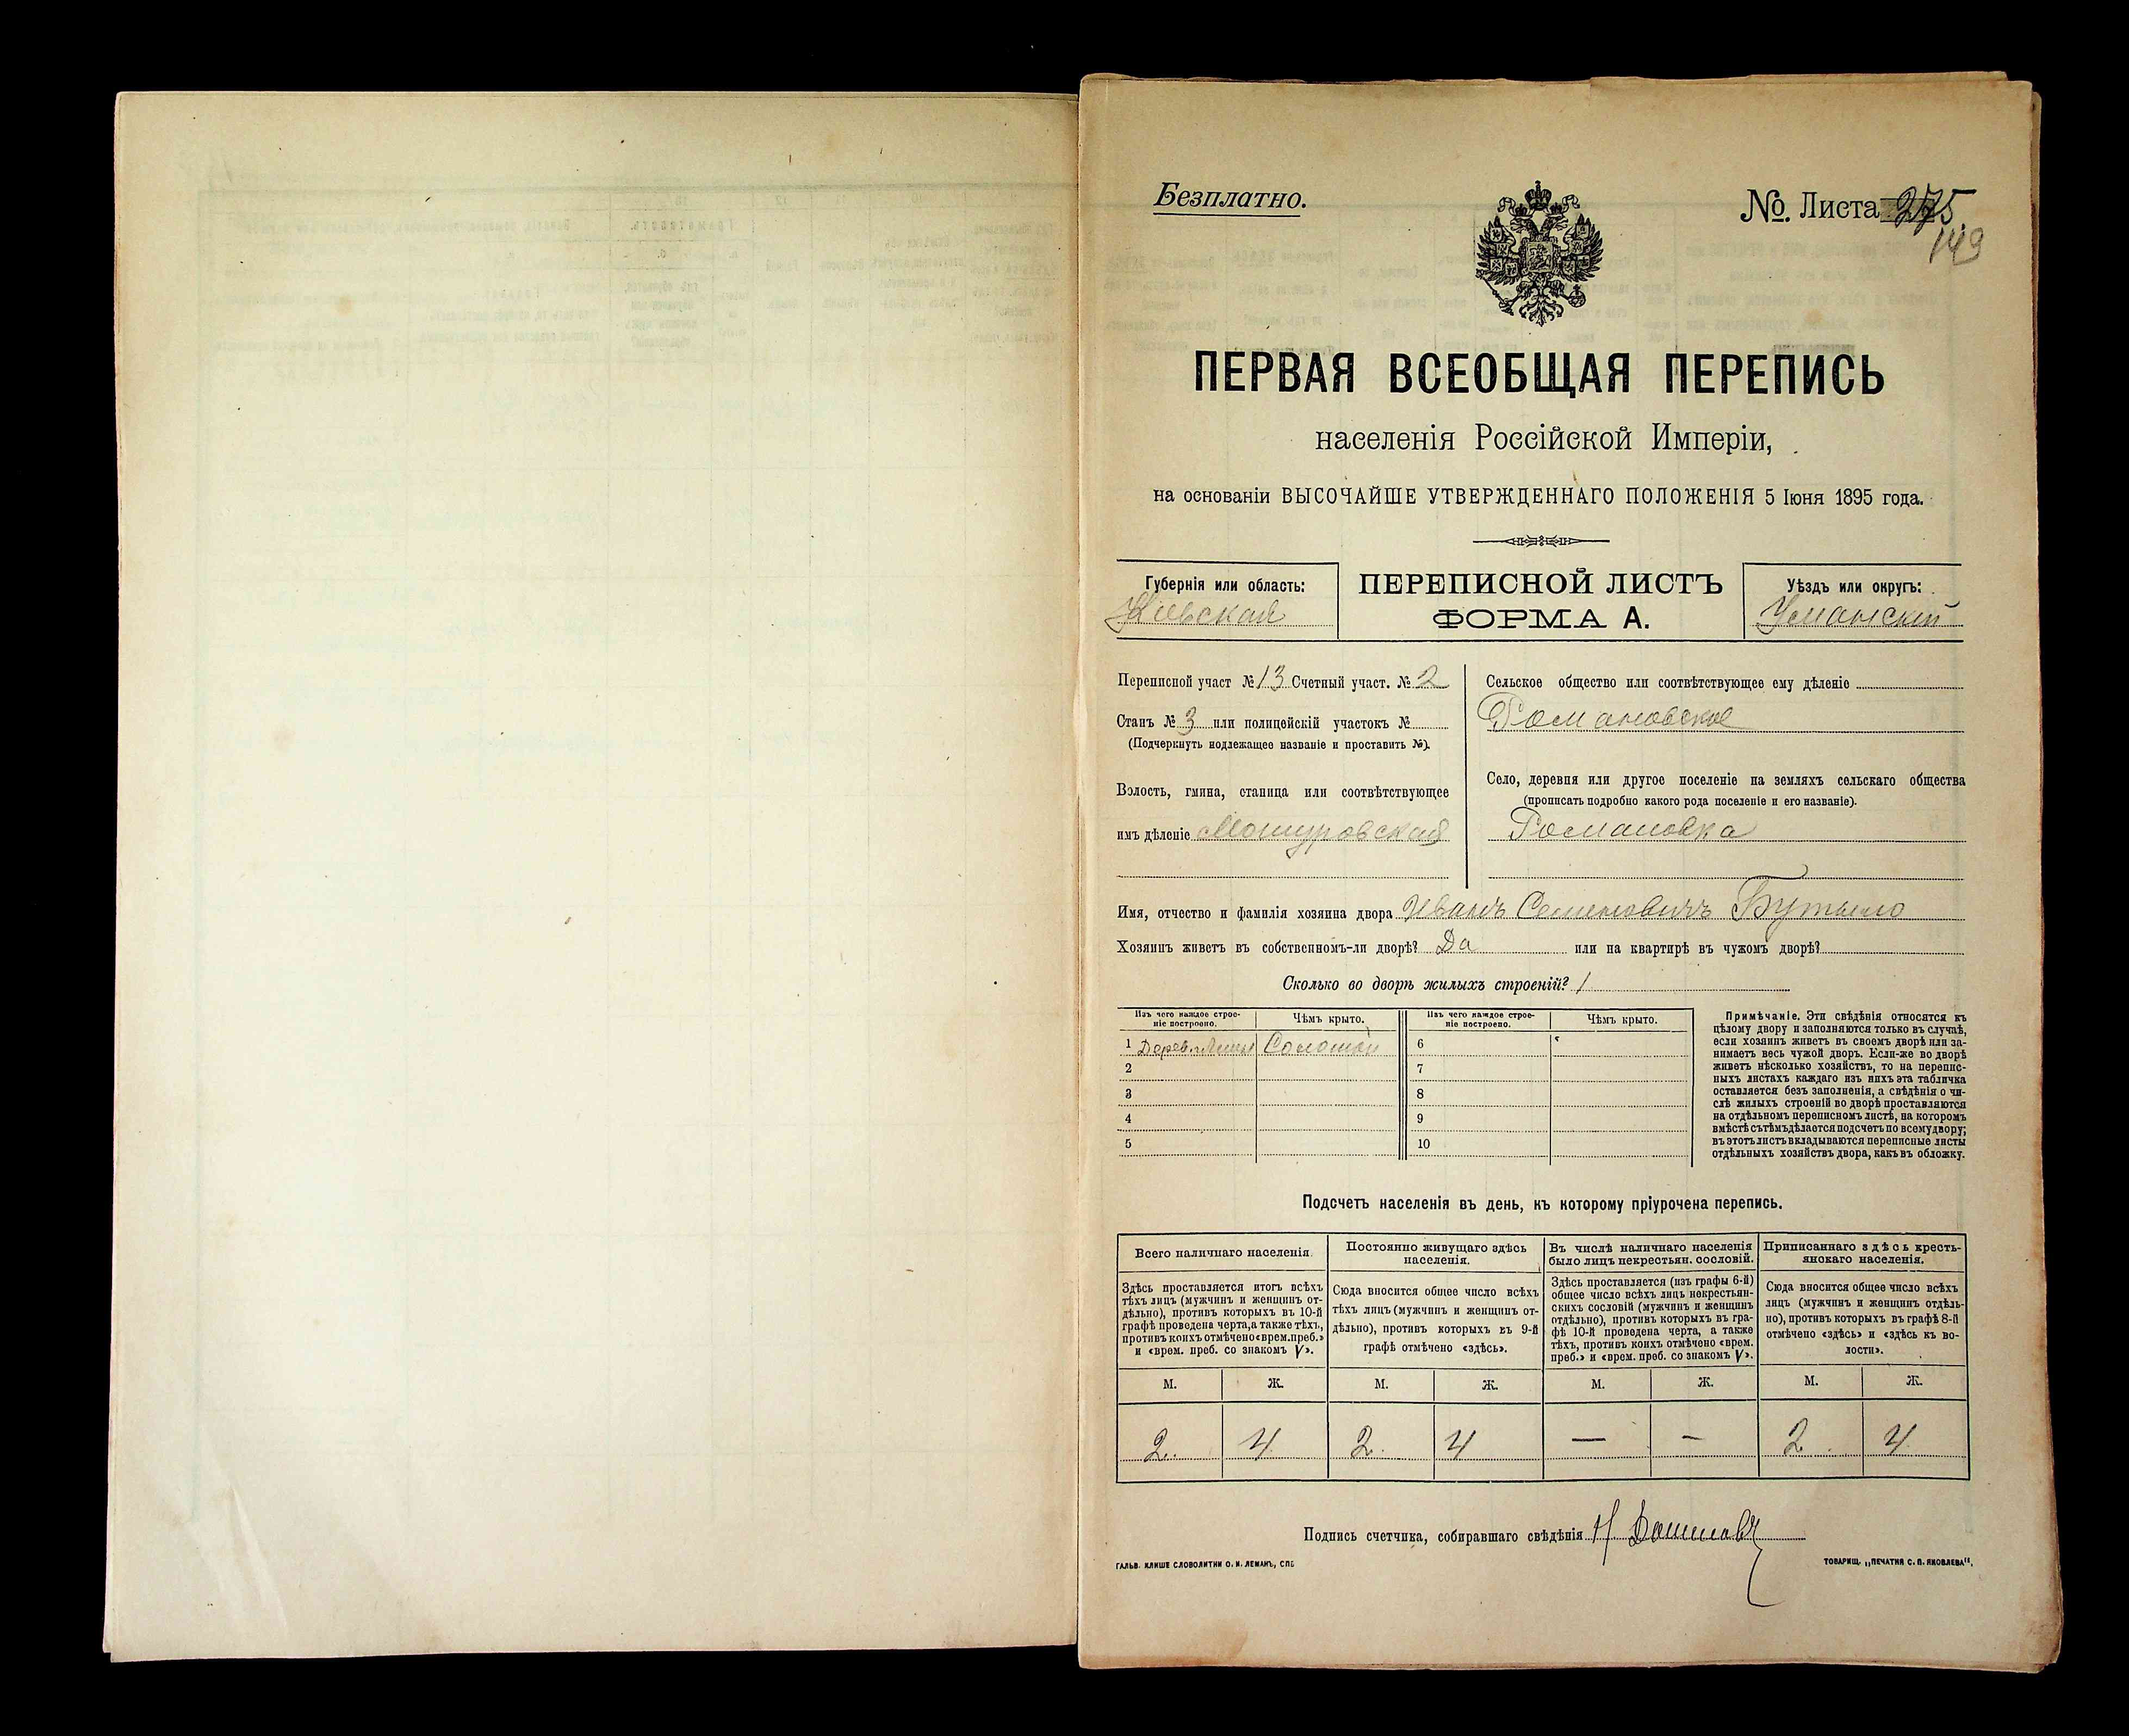 Безплатно.
№ Листа 275.
149
ПЕРВАЯ ВСЕОБЩАЯ ПЕРЕПИСЬ
населенія Россійской Имперіи,
на основаніи ВЫСОЧАЙШЕ УТВЕРЖДЕННАГО ПОЛОЖЕНІЯ 5 Іюня 1895 года.
Губернія или область:
Кіевская
ПЕРЕПИСНОЙ ЛИСТЪ
ФОРМА А.
Уѣздъ или округъ:
Уманскій
Переписной участ № 13 Счетный участ. № 2
Станъ № 3 или полицейскій участокъ №
(Подчеркнуть подлежащее названіе и проставить №).
Волость, гмина, станица или соотвѣтствующее
имъ дѣленіе Мошуровская
Сельское общество или соотвѣтствующее ему дѣленіе
Романовское
Село, деревня или другое поселеніе на земляхъ сельскаго общества
(прописать подробно какого рода поселеніе и его названіе).
Романовка
Имя, отчество и фамилія хозяина двора Иванъ Семеновичъ
Хозяинъ живетъ въ собственномъ-ли дворѣ? Да или на квартирѣ въ чужомъ дворѣ?
Сколько во дворѣ жилыхъ строеній? 1
Изъ чего каждое строе-
ніе построено.
Чѣмъ крыто.
Изъ чего каждое строе-
ніе построено.
Чѣмъ крыто.
1 Дерев. Соломой 6
2 7
3 8
4 9
5 10
Примѣчаніе. Эти свѣдѣнія относятся къ
цѣлому двору и заполняются только въ случаѣ,
если хозяинъ живетъ въ своемъ дворѣ или за-
нимаетъ весь чужой дворъ. Если-же во дворѣ
живетъ нѣсколько хозяйствъ, то на перепис-
ныхъ листахъ каждаго изъ нихъ эта табличка
оставляется безъ заполненія, а свѣдѣнія о чи-
слѣ жилыхъ строеній во дворѣ проставляются
на отдѣльномъ переписномъ листѣ, на которомъ
вмѣстѣ съ тѣмъ дѣлается подсчетъ по всему двору;
въ этотъ листъ вкладываются переписные листы
отдѣльныхъ хозяйствъ двора, какъ въ обложку.
Подсчетъ населенія въ день, къ которому пріурочена перепись.
Всего наличнаго населенія.
Здѣсь проставляется итогъ всѣхъ
тѣхъ лицъ (мужчинъ и женщинъ от-
дѣльно), противъ которыхъ въ 10-й
графѣ проведена черта, а также тѣхъ,
противъ коихъ отмѣчено «врем. преб.»
и «врем. преб. со знакомъ V».
Постоянно живущаго здѣсь
населенія.
Сюда вносится общее число всѣхъ
тѣхъ лицъ (мужчинъ и женщинъ от-
дѣльно), противъ которыхъ въ 9-й
графѣ отмѣчено «здѣсь».
Въ числѣ наличнаго населенія
было лицъ некрестьян. сословій.
Здѣсь проставляется (изъ графы 6-й)
общее число всѣхъ лицъ некрестьян-
скихъ сословій (мужчинъ и женщинъ
отдѣльно), противъ которыхъ въ гра-
фѣ 10-й проведена черта, а также
тѣхъ, противъ коихъ отмѣчено «врем.
преб.» и «врем. преб. со знакомъ V».
Приписаннаго здѣсь кресть-
янскаго населенія.
Сюда вносится общее число всѣхъ
лицъ (мужчинъ и женщинъ отдѣль-
но), противъ которыхъ въ графѣ 8-й
отмѣчено «здѣсь» и «здѣсь къ во-
лости».
М. Ж. М. Ж. М. Ж. М. Ж.
2. 4 2. 4 — – 2. 4
Подпись счетчика, собиравшаго свѣдѣнія
ГАЛЬВ. КЛИШЕ СЛОВОЛИТНИ О. И. ЛЕМАНЪ, СПБ
ТОВАРИЩ. „ПЕЧАТНЯ С. П. ЯКОВЛЕВА".